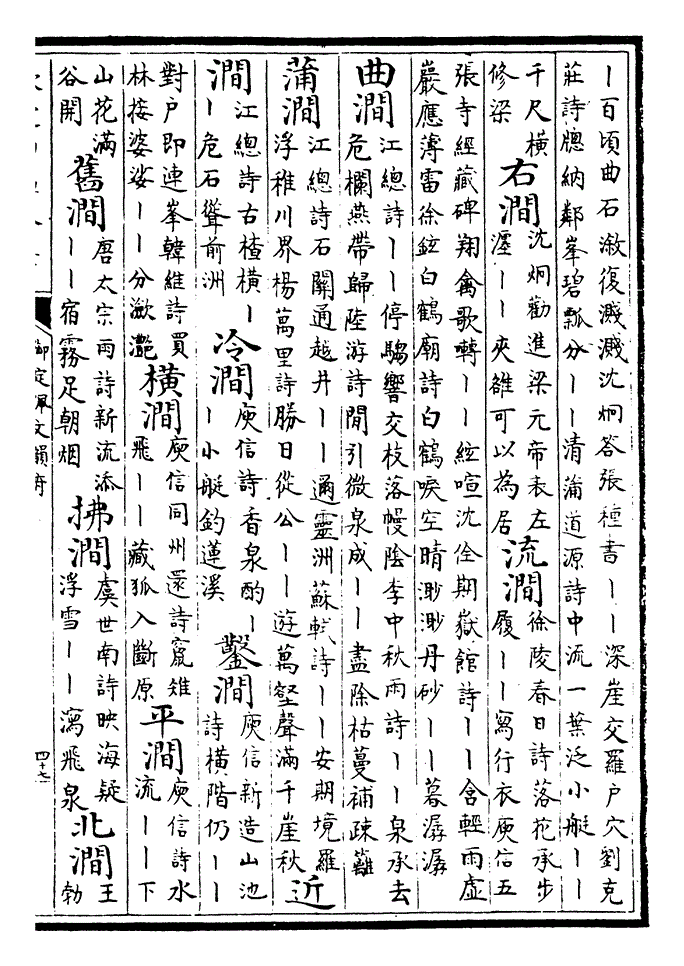 丨百頃曲石潋復濺濺沈炯答張種書丨丨深崖交羅户穴劉克
莊詩牕納鄰峯碧瓢分丨丨清蒲道源詩中流一葉泛小艇丨丨
千尺橫
修梁
右澗
沈炯勸進梁元帝表左
瀍丨丨夾雒可以為居
流澗
徐陵春日詩落花承步
履丨丨寫行衣庾信五
張寺經藏碑翔禽歌囀丨丨絃喧沈佺期嶽館詩丨丨含輕雨虛
巖應薄雷徐鉉白鶴廟詩白鶴唳空晴渺渺丹砂丨丨暮潺潺
曲澗
江總詩丨丨停騶響交枝落幔陰李中秋雨詩丨丨泉承去
危欄燕帶歸陸游詩閒引微泉成丨丨盡除枯蔓補疎籬
蒲澗
江總詩石關通越井丨丨邇靈洲蘇軾詩丨丨安期境羅
浮稚川界楊萬里詩勝日從公丨丨遊萬壑聲滿千崖秋
近
澗
江總詩古楂橫丨
丨危石聳前洲
冷澗
庾信詩香泉酌丨
丨小艇釣蓮溪
鑿澗
庾信新造山池
詩橫階仍丨丨
對户即連峯韓維詩買
林接婆娑丨丨分瀲灧
橫澗
庾信同州還詩竄雉
飛丨丨藏狐入斷原
平澗
庾信詩水
流丨丨下
山花滿
谷開
舊澗
唐太宗雨詩新流添
丨丨宿霧足朝烟
拂澗
虞世南詩映海疑
浮雪丨丨瀉飛泉
北澗
王
勃
御定佩文韻府
四十七